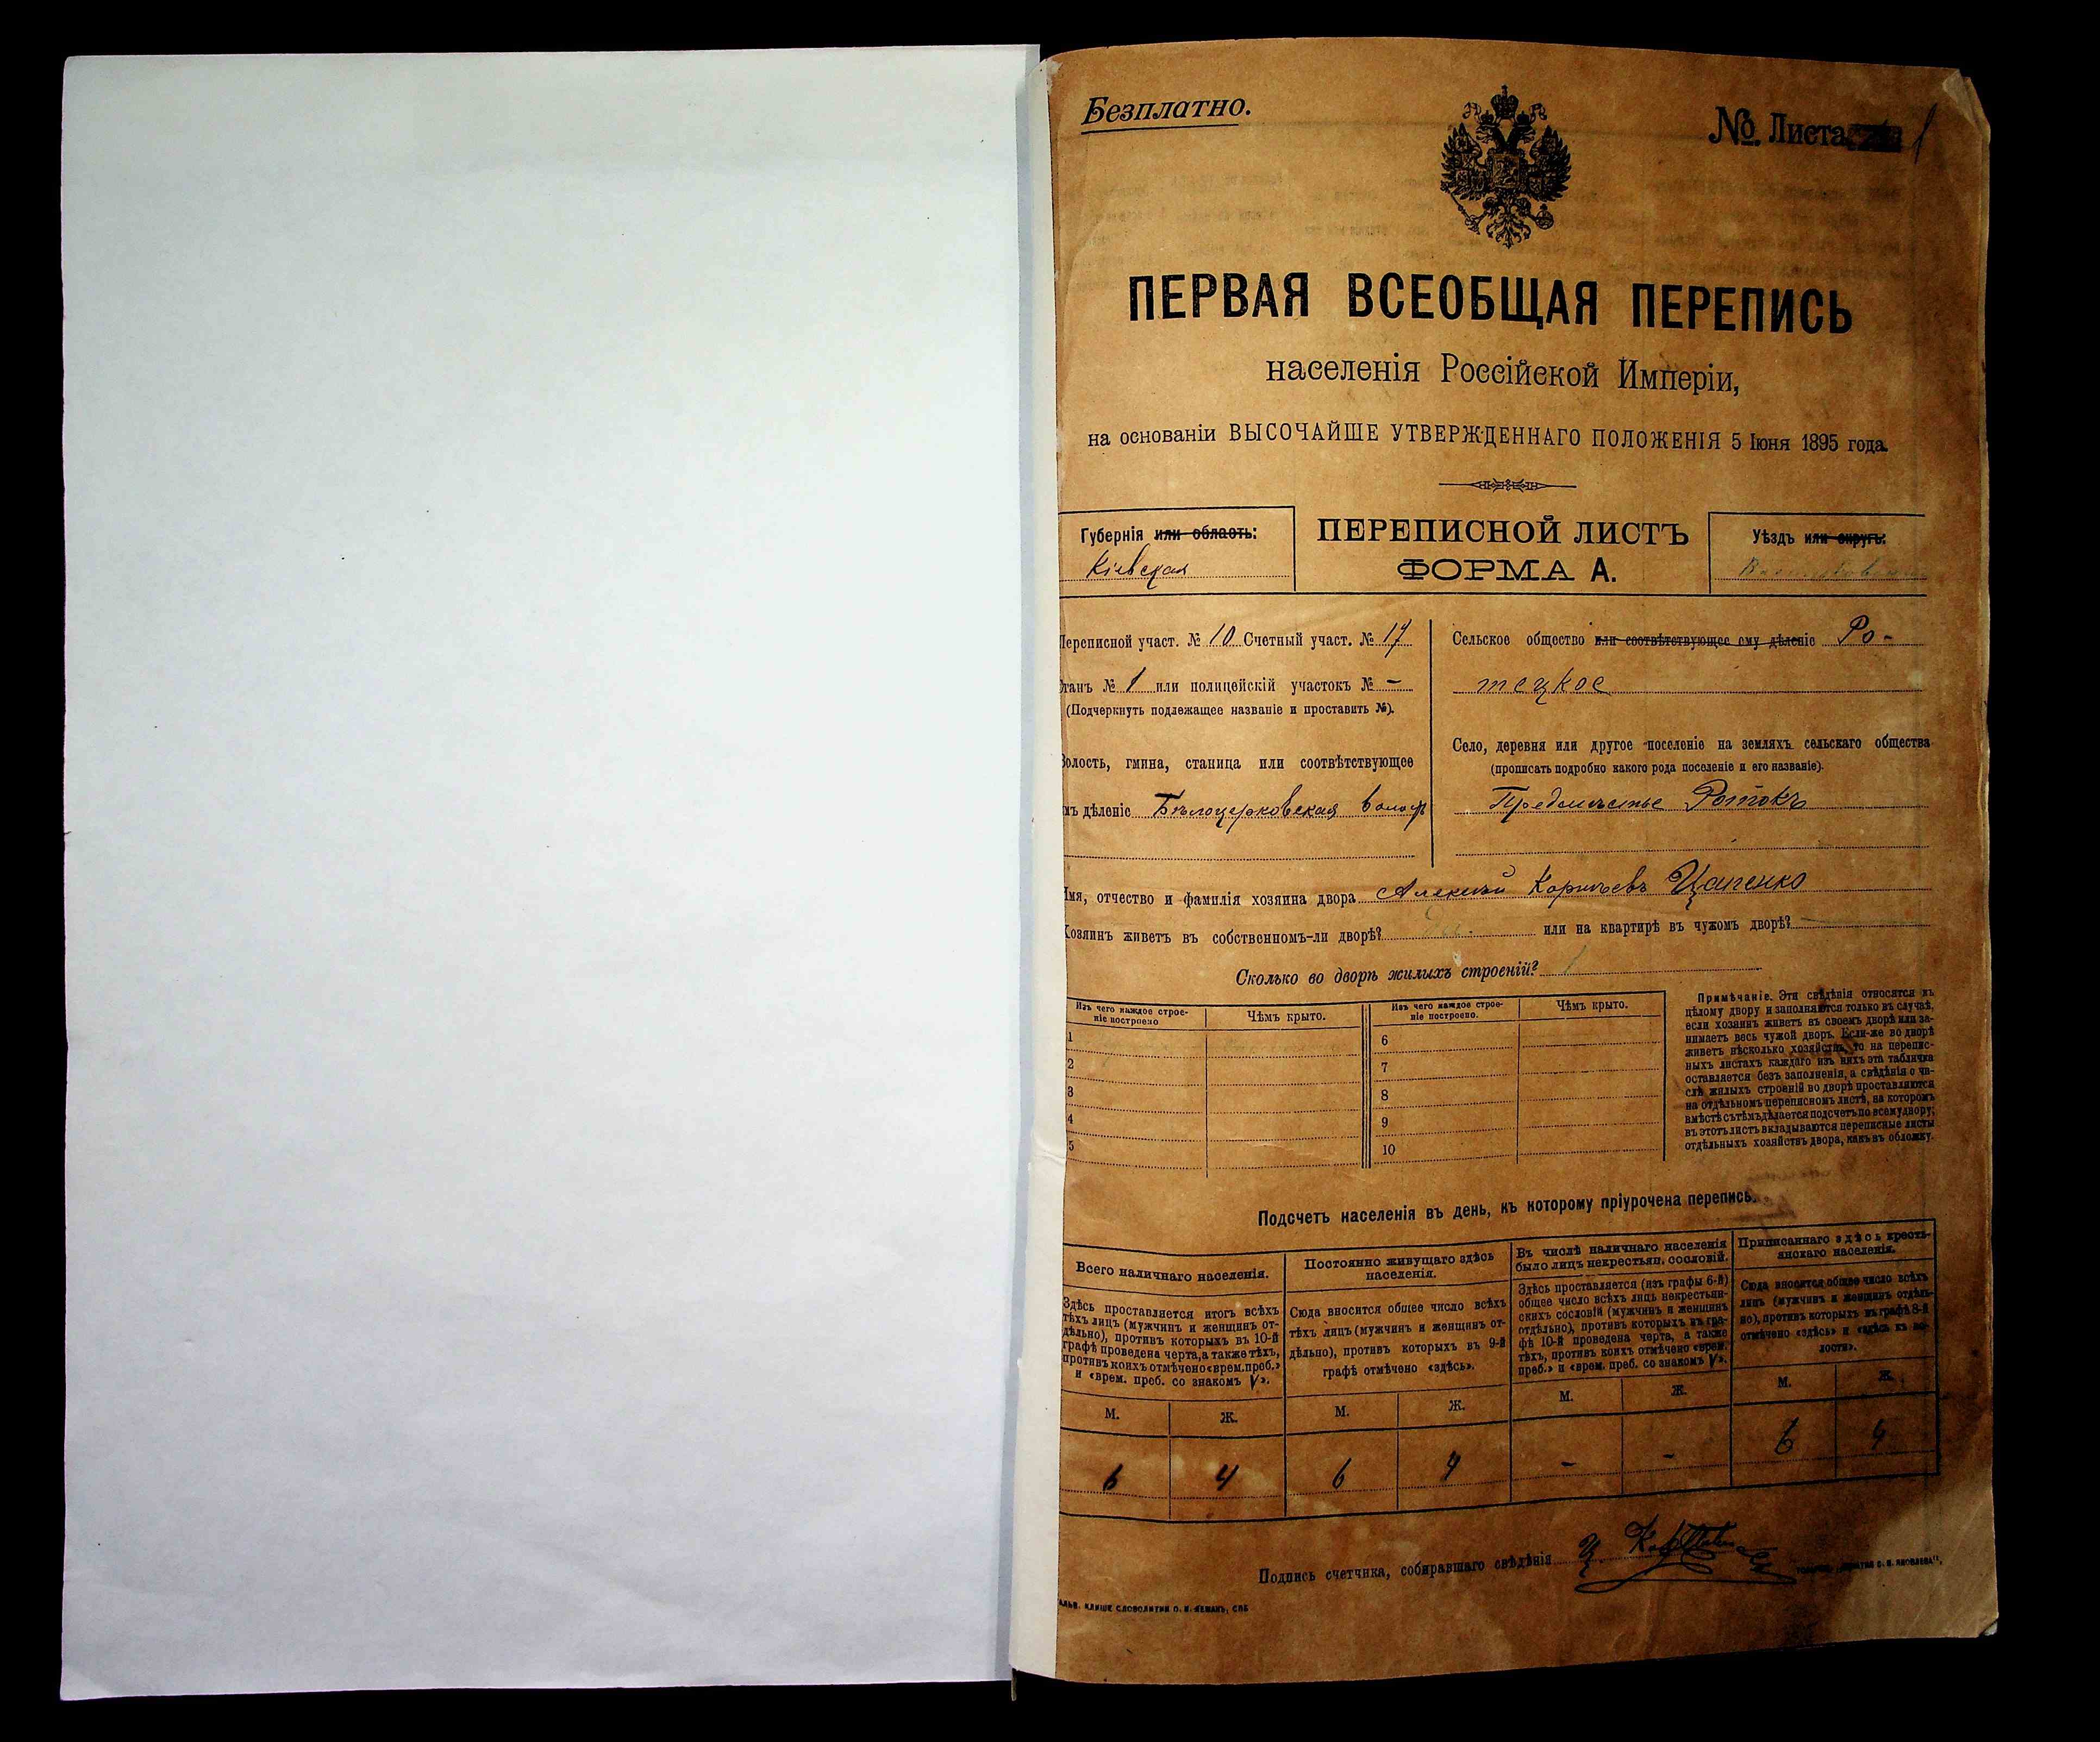 Безплатно.
№ Листа 1
ПЕРВАЯ ВСЕОБЩАЯ ПЕРЕПИСЬ
населенія Россійской Имперіи,
на основаніи ВЫСОЧАЙШЕ УТВЕРЖДЕННАГО ПОЛОЖЕНІЯ 5 Іюня 1895 года.
Губернія или область:
Кіевская
ПЕРЕПИСНОЙ ЛИСТЪ
ФОРМА А.
Уѣздъ или округъ:
Переписной участ. № 10 Счетный участ. № 17
Станъ № 1 или полицейскій участокъ № -
(Подчеркнуть подлежащее названіе и проставить №).
Волость, гмина, станица или соотвѣтствующее
имъ дѣленіе Бѣлоцерковская волость
Сельское общество или соотвѣтствующее ему дѣленіе Ро-
тецкое
Село, деревня или другое поселеніе на земляхъ сельскаго общества
(прописать подробно какого рода поселеніе и его названіе).
Предмѣстье Ротокъ
Имя, отчество и фамилія хозяина двора Алексѣй Корнѣевъ Цапенко
Хозяинъ живетъ въ собственномъ-ли дворѣ? или на квартирѣ въ чужомъ дворѣ?
Сколько во дворѣ жилыхъ строеній? 1
Изъ чего каждое строе-
ніе построено
Чѣмъ крыто.
1
2
3
4
5
Изъ чего каждое строе-
ніе построено.
Чѣмъ крыто.
6
7
8
9
10
Примѣчаніе. Эти свѣдѣнія относятся къ
цѣлому двору и заполняются только въ случаѣ,
если хозяинъ живетъ въ своемъ дворѣ или за-
нимаетъ весь чужой дворъ. Если-же во дворѣ
живетъ нѣсколько хозяйствъ, то на перепис-
ныхъ листахъ каждаго изъ нихъ эта табличка
оставляется безъ заполненія, а свѣдѣнія о чи-
слѣ жилыхъ строеній во дворѣ проставляются
на отдѣльномъ переписномъ листѣ, на которомъ
вмѣстѣ съ тѣмъ дѣлается подсчетъ по всему двору;
въ этотъ листъ вкладываются переписные листы
отдѣльныхъ хозяйствъ двора, какъ въ обложку.
Подсчетъ населенія въ день, къ которому пріурочена перепись.
Всего наличнаго населенія.
Здѣсь проставляется итогъ всѣхъ
тѣхъ лицъ (мужчинъ и женщинъ от-
дѣльно), противъ которыхъ въ 10-й
графѣ проведена черта, а также тѣхъ,
противъ коихъ отмѣчено «врем. преб.»
и «врем. преб. со знакомъ V».
М. Ж.
6 4
Постоянно живущаго здѣсь
населенія.
Сюда вносится общее число всѣхъ
тѣхъ лицъ (мужчинъ и женщинъ от-
дѣльно), противъ которыхъ въ 9-й
графѣ отмѣчено «здѣсь».
М. Ж.
6 4
Въ числѣ наличнаго населенія
было лицъ некрестьян. сословій.
Здѣсь проставляется (изъ графы 6-й)
общее число всѣхъ лицъ некрестьян-
скихъ сословій (мужчинъ и женщинъ
отдѣльно), противъ которыхъ въ гра-
фѣ 10-й проведена черта, а также
тѣхъ, противъ коихъ отмѣчено «врем.
преб.» и «врем. преб. со знакомъ V».
М. Ж.
- -
Приписаннаго здѣсь кресть-
янскаго населенія.
Сюда вносится общее число всѣхъ
лицъ (мужчинъ и женщинъ отдѣль-
но), противъ которыхъ въ графѣ 8-й
отмѣчено «здѣсь» и «здѣсь въ во-
лости».
М. Ж.
6 4
Подпись счетчика, собиравшаго свѣдѣнія
КЛИШЕ СЛОВОЛИТНИ О. И. ЛЕМАНЪ, СПБ